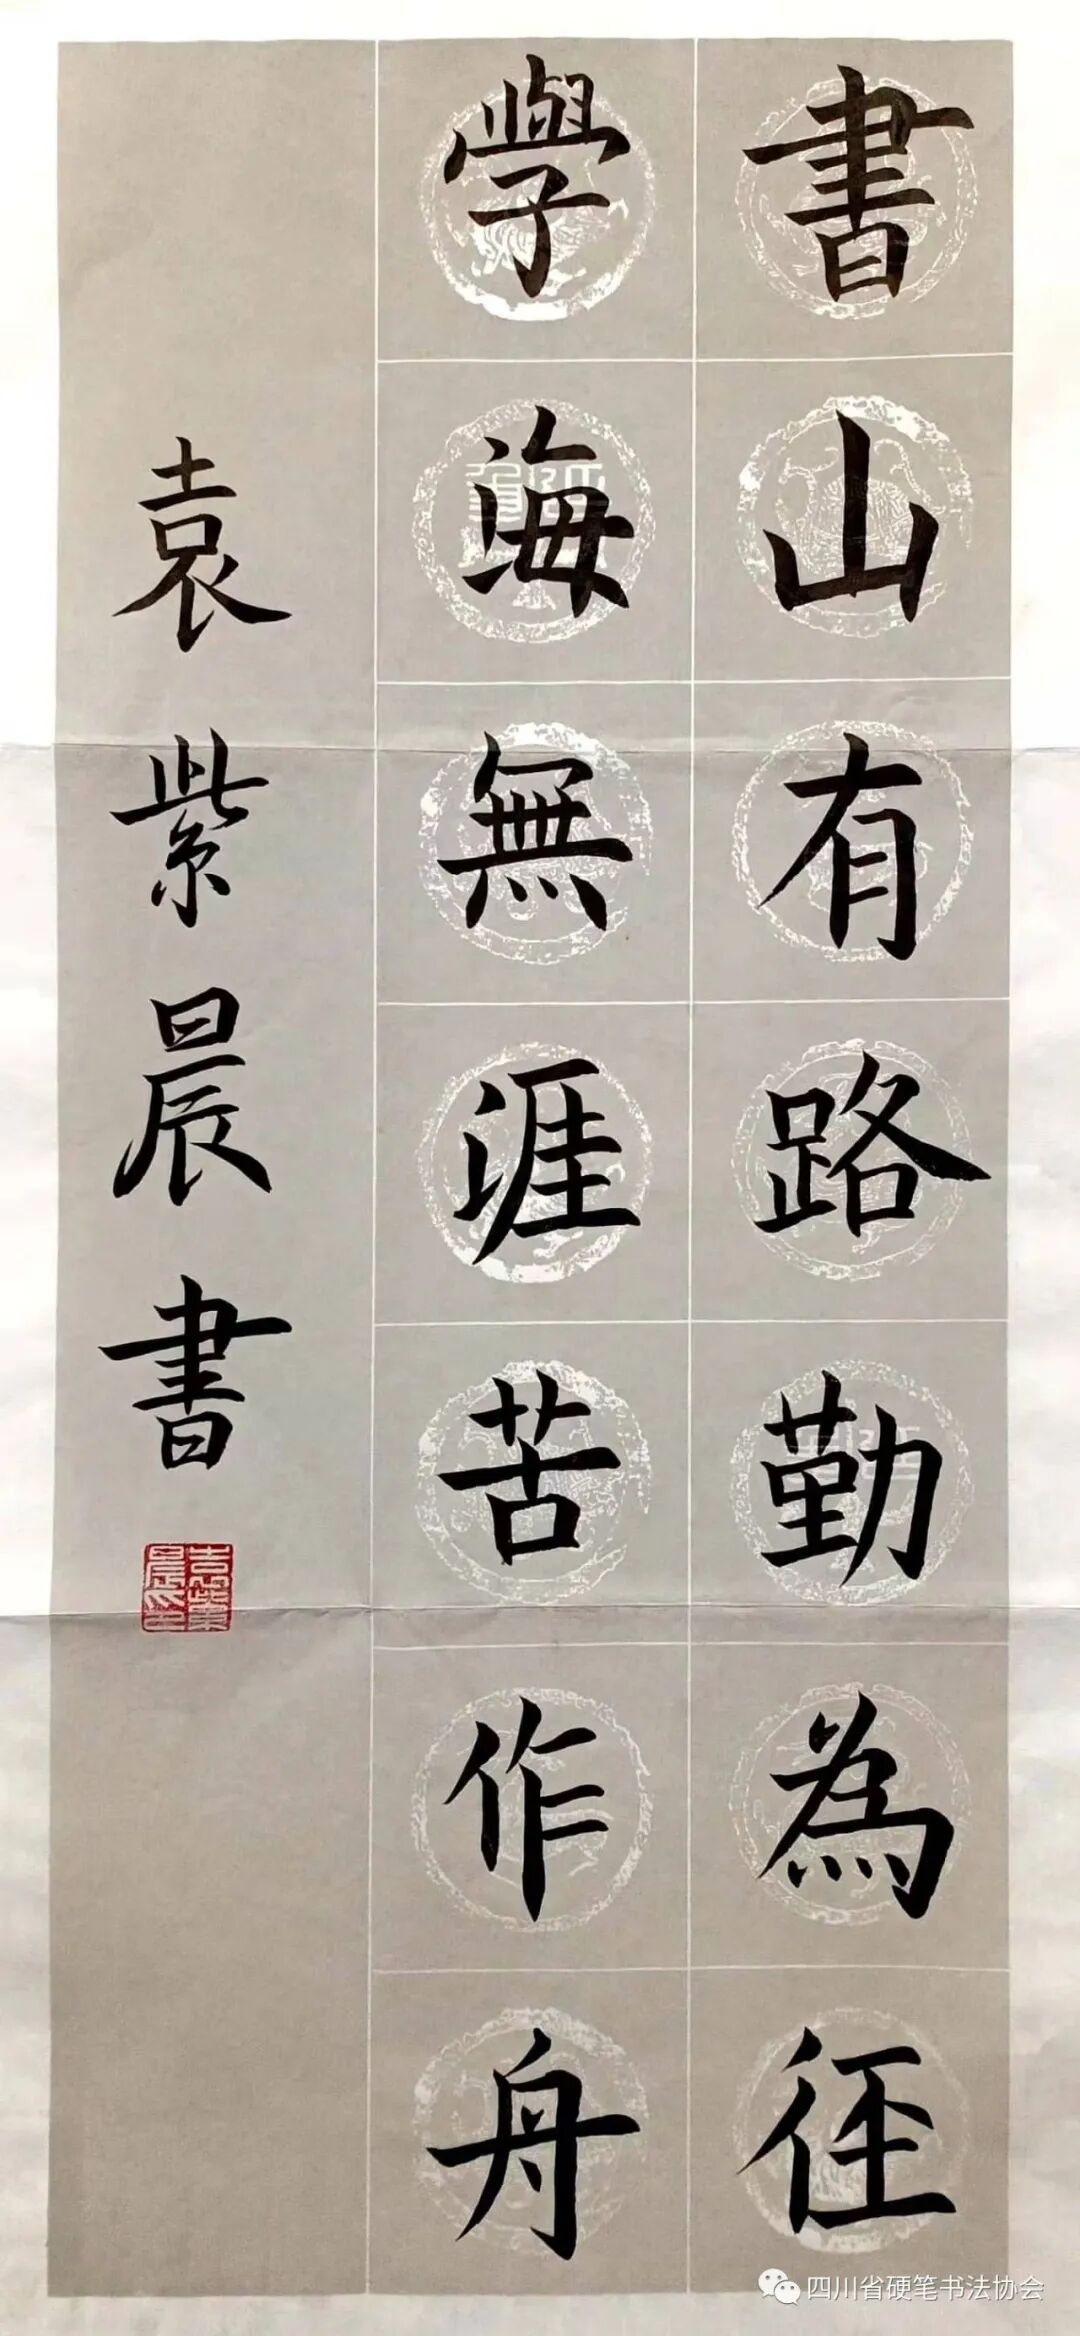 書山有路勤為徑
學海無涯苦作舟
袁紫晨書
袁紫晨印
四川省硬笔书法协会